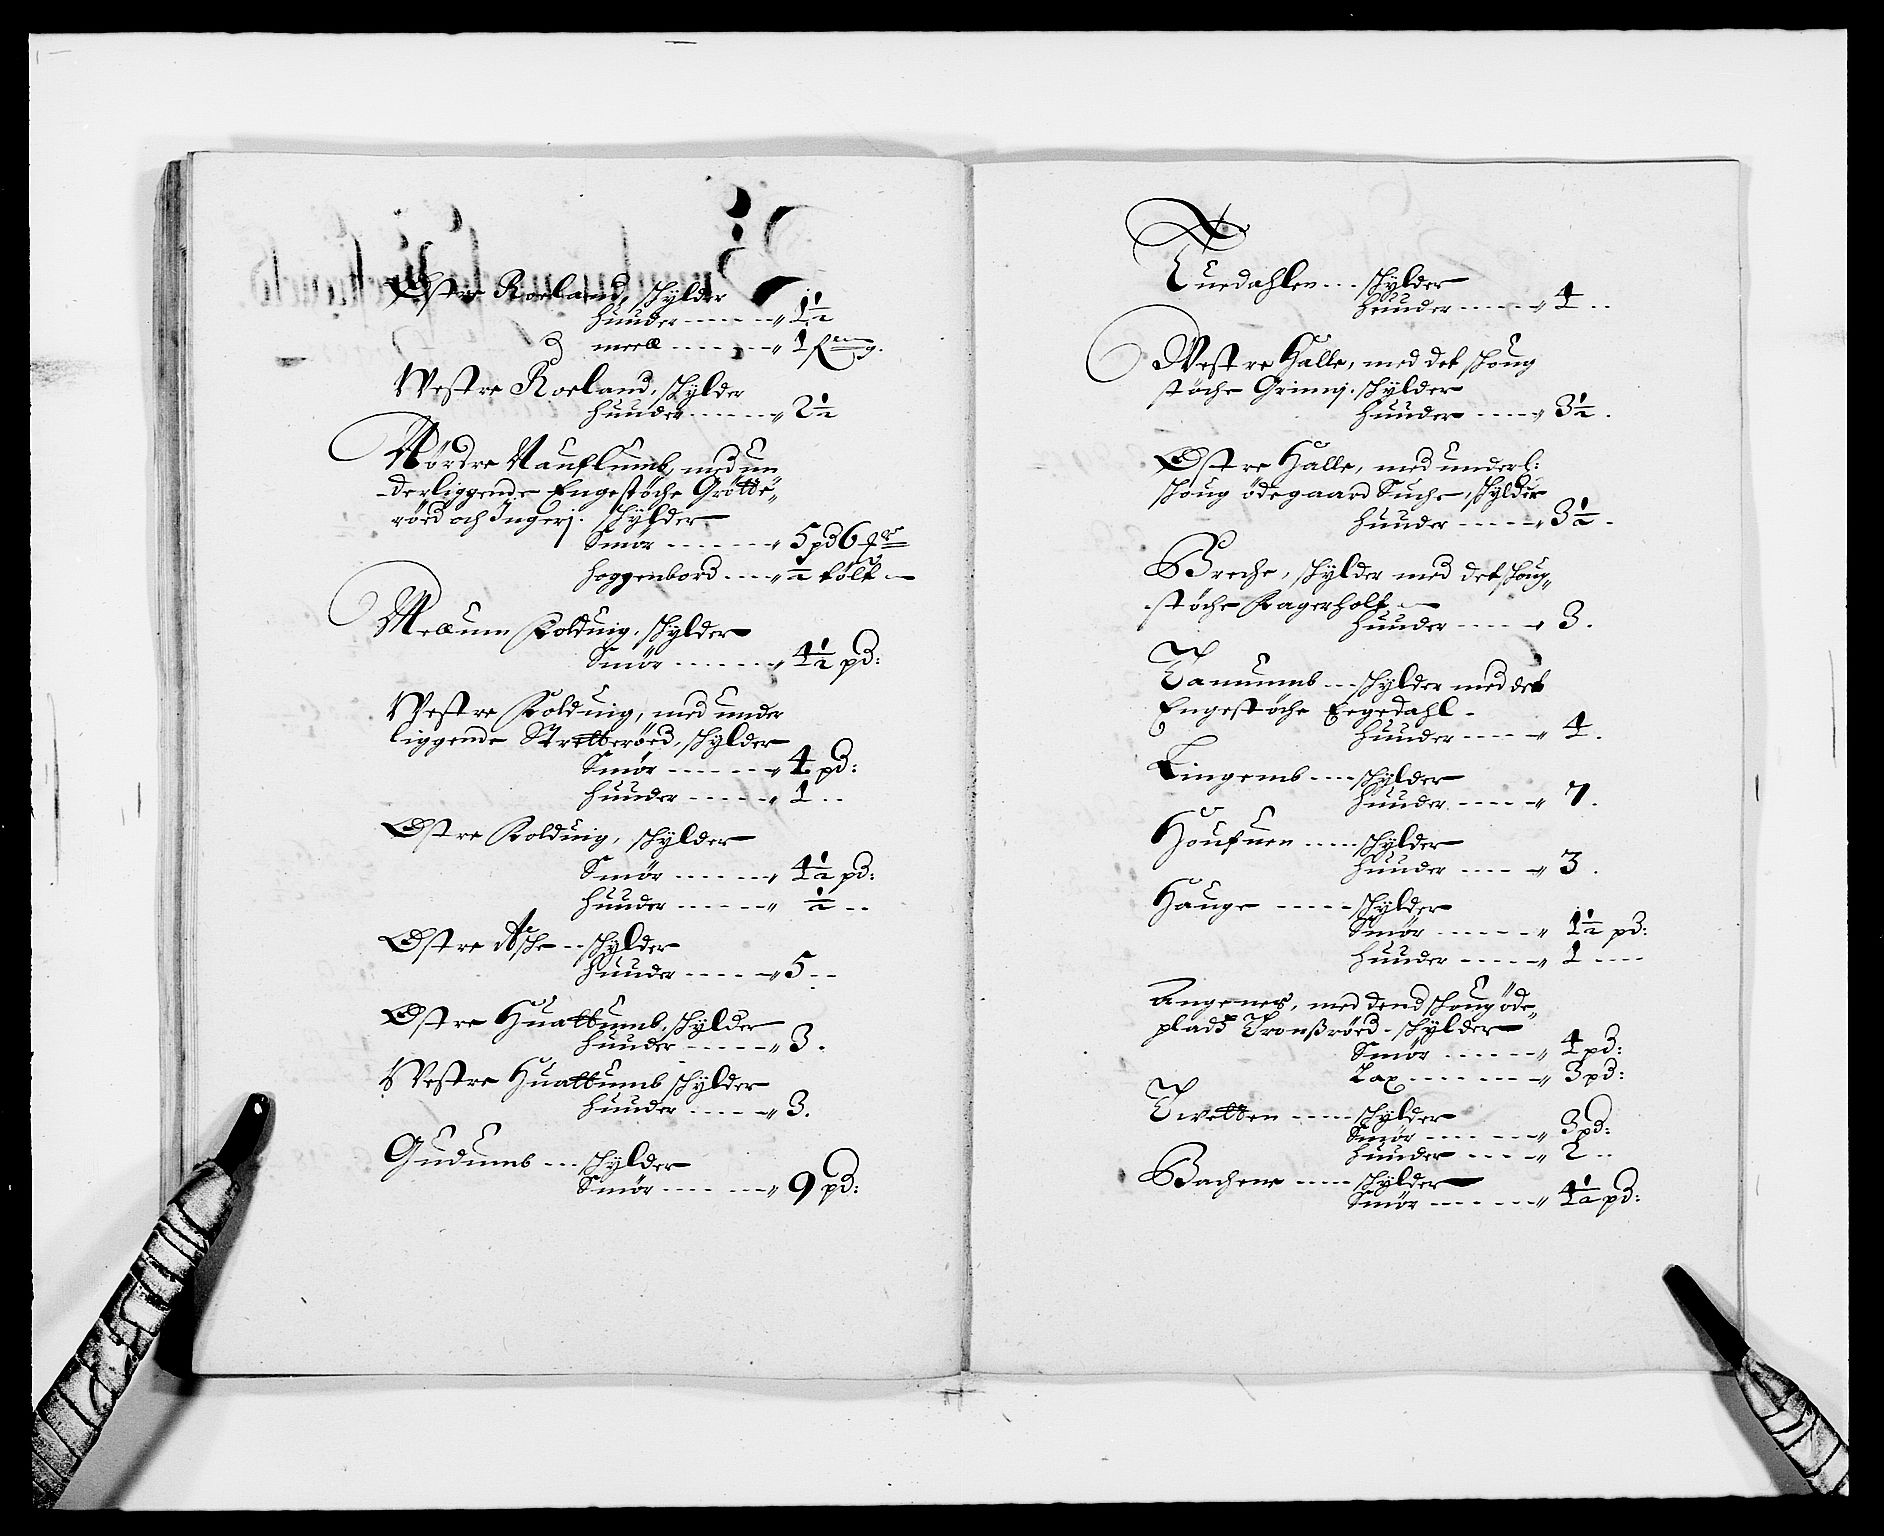 Østre Roeland, schylder
huuder ------ „ 1½
3 meell ------ „ 1 Reng.
Westre Roeland, schylder
huuder ------ „ 2½
Nørdre Nauflumb, med un
-derliggende Engestøche Grötte„
röed och Ingerj. schylder
Smør ------ „ 5 pd 6
hoggenbord ---- „ ½ tølt
Mellum Kolduig, schylder
Smør ------ „ 4½ pd:
Westre Kolduig, med under
liggende Stretterøed, schylder
Smør ------ „ 4 pd:
huuder ------ „ 1 --
Østre Kolduig, schylder
Smør ------ „ 4½ pd:
huuder ------ „ ½ --
Østre Asche -- schylder
huuder ------ „ 5 --
Østre Huattumb, schylder
huuder ------ „ 3.
Westre Huattumb schylder
huuder ------ „ 3.
Gudumb --- schylder
Smør ------ „ 9 pd:
Tuedahlen --- schylder
huuder ------ „ 4 --
Westre Halle, med det schoug
støche Grimj. schylder
huuder ----- „ 3½.
Østre Halle, med underl:
schoug ödegaard Suche, schylder
huuder ----- „ 3½ -
Breche, schylder med det schoug„
støche Kagerholt
huuder ----- „ 3.
Tanumb --- schylder med det
Engestøche Eegedahl -
huuder ----- „ 4.
Lingemb ---- schylder
huuder ----- „ 7.
Houfuen ----- schylder
huuder ----- „ 3.
Hauge ----- schylder
Smør ------ „ 1½ pd:
huuder ----- „ 1 ----
Angenes, med dend schoug öde„
pladtz Tronßröed - schylder
Smør ------ „ 4 pd:
Lax ------ „ 3 pd:
Twetten ----- schylder
Smør ------ „ 3 pd:
huuder ---- „ 2 --
Bachene ----- schylder
Smør ------ „ 4½ pd: